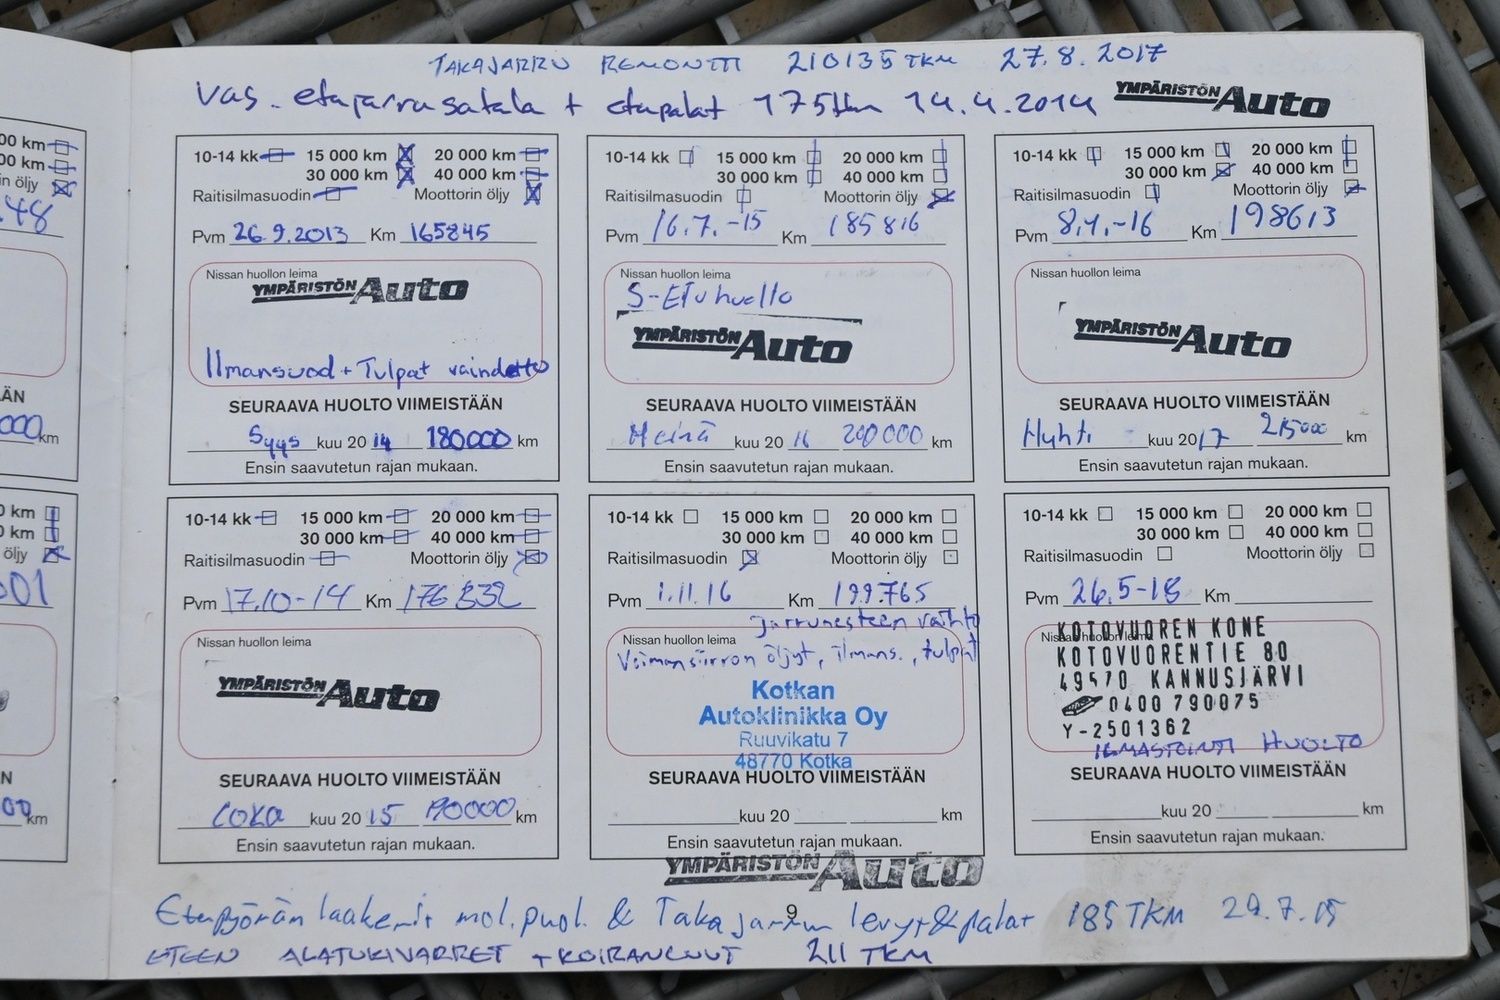 TAKAJARRU REMONTTI 210135 TKM 27.8.2017
Vas. etujarrusatula + etupalat 175tkm 14.4.2014 YMPÄRISTÖN Auto
00 km
00 km
in öljy
.48
ÄN
000 km
0 km
0 km
öljy
001
N
00 km
10-14 kk 15 000 km 20 000 km
30 000 km 40 000 km
Raitisilmasuodin Moottorin öljy
Pvm 26.9.2013 Km 165845
Nissan huollon leima
YMPÄRISTÖN Auto
Ilmansuod + Tulpat vaihdettu
SEURAAVA HUOLTO VIIMEISTÄÄN
Syys kuu 20 14 180000 km
Ensin saavutetun rajan mukaan.
10-14 kk 15 000 km 20 000 km
30 000 km 40 000 km
Raitisilmasuodin Moottorin öljy
Pvm 16.7.-15 Km 185816
Nissan huollon leima
S-Etuhuolto
YMPÄRISTÖN Auto
SEURAAVA HUOLTO VIIMEISTÄÄN
Heinä kuu 20 16 200000 km
Ensin saavutetun rajan mukaan.
10-14 kk 15 000 km 20 000 km
30 000 km 40 000 km
Raitisilmasuodin Moottorin öljy
Pvm 8.4.-16 Km 198613
Nissan huollon leima
YMPÄRISTÖN Auto
SEURAAVA HUOLTO VIIMEISTÄÄN
Huhti kuu 20 17 215000 km
Ensin saavutetun rajan mukaan.
10-14 kk 15 000 km 20 000 km
30 000 km 40 000 km
Raitisilmasuodin Moottorin öljy
Pvm 17.10-14 Km 176832
Nissan huollon leima
YMPÄRISTÖN Auto
SEURAAVA HUOLTO VIIMEISTÄÄN
LOKA kuu 20 15 190000 km
Ensin saavutetun rajan mukaan.
10-14 kk 15 000 km 20 000 km
30 000 km 40 000 km
Raitisilmasuodin Moottorin öljy
Pvm 1.11.16 Km 199.765
Jarrunesteen vaihto
Nissan huollon leima
Voimansiirron öljyt, ilmans., tulpat
Kotkan
Autoklinikka Oy
Ruuvikatu 7
48770 Kotka
SEURAAVA HUOLTO VIIMEISTÄÄN
kuu 20 km
Ensin saavutetun rajan mukaan.
10-14 kk 15 000 km 20 000 km
30 000 km 40 000 km
Raitisilmasuodin Moottorin öljy
Pvm 26.5-18 Km
Nissan huollon leima
KOTOVUOREN KONE
KOTOVUORENTIE 80
49570 KANNUSJÄRVI
0400 790075
Y-2501362
ILMASTOINTI HUOLTO
SEURAAVA HUOLTO VIIMEISTÄÄN
kuu 20 km
Ensin saavutetun rajan mukaan.
YMPÄRISTÖN Auto
9
Etupyörän laakerit mol.puol. & Takajarrun levyt&palat 185 TKM 29.7.15
ETEEN ALATUKIVARRET + KOIRANLUUT 211 TKM